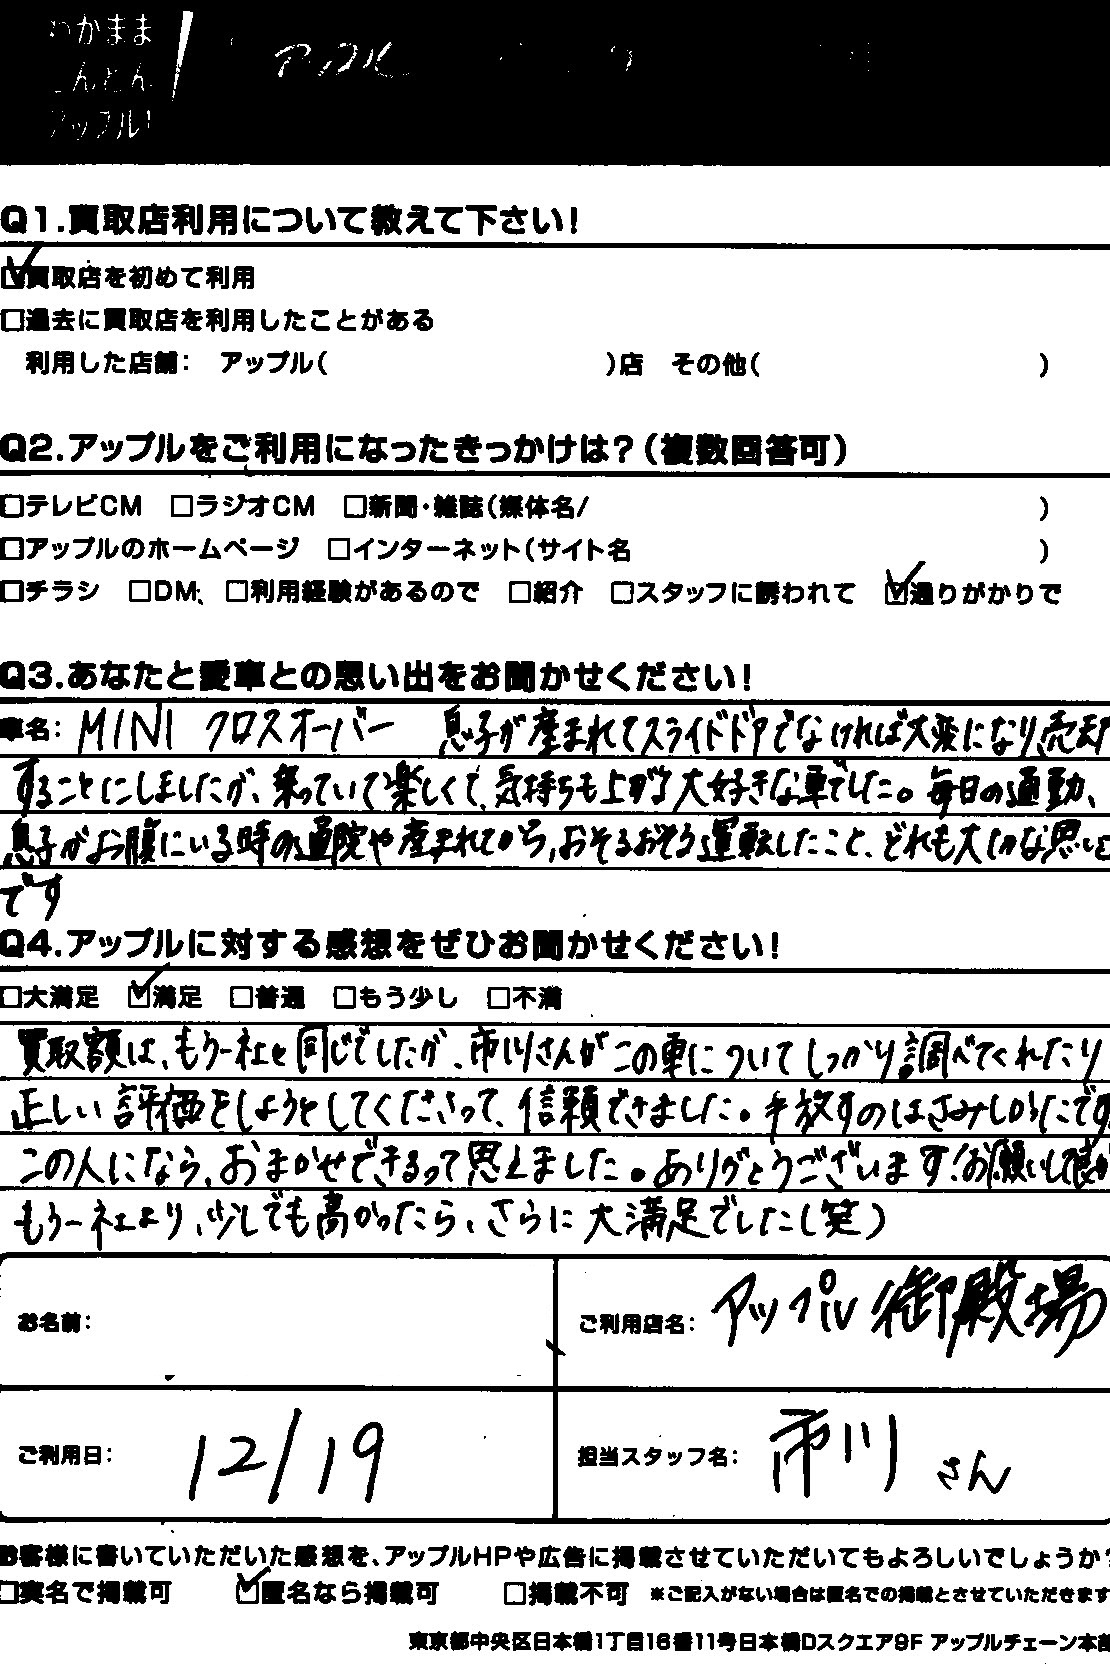 わがまま
とんとん
アップル!
アップル
Q1.買取店利用について教えて下さい!
☑買取店を初めて利用
□過去に買取店を利用したことがある
利用した店舗: アップル( )店 その他( )
Q2.アップルをご利用になったきっかけは?(複数回答可)
□テレビCM □ラジオCM □新聞・雑誌(媒体名/ )
□アップルのホームページ □インターネット(サイト名 )
□チラシ □DM、 □利用経験があるので □紹介 □スタッフに誘われて ☑通りがかりで
Q3.あなたと愛車との思い出をお聞かせください!
車名: MINI クロスオーバー 息子が産まれてスライドドアでなければ大変になり、売却
することにしましたが、乗っていて楽しくて、気持ちも上がる大好きな車でした。毎日の通勤、
息子がお腹にいる時の通院や産まれてから、おそるおそる運転したこと、どれも大切な思い出
です
Q4.アップルに対する感想をぜひお聞かせください!
□大満足 ☑満足 □普通 □もう少し □不満
買取額は、もう一社と同じでしたが、市川さんがこの車についてしっかり調べてくれたり
正しい評価をしようとしてくださって、信頼できました。手放すのはさみしかったです
この人になら、おまかせできるって思えました。ありがとうございます!お願いして良か
もう一社より、少しでも高かったら、さらに大満足でした(笑)
お名前:
ご利用店名: アップル 御殿場
ご利用日: 12/19
担当スタッフ名: 市川 さん
お客様に書いていただいた感想を、アップルHPや広告に掲載させていただいてもよろしいでしょうか?
□実名で掲載可 ☑匿名なら掲載可 □掲載不可 ※ご記入がない場合は匿名での掲載とさせていただきます
東京都中央区日本橋1丁目16番11号日本橋Dスクエア9F アップルチェーン本部